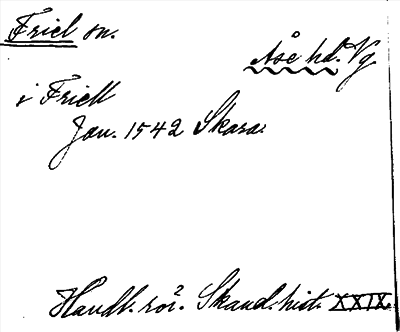 Friel sn.
Åse hd. Vg.
i Friell
Jan. 1542 Skara.
Handl. rör. Skand. hist. XXIX.